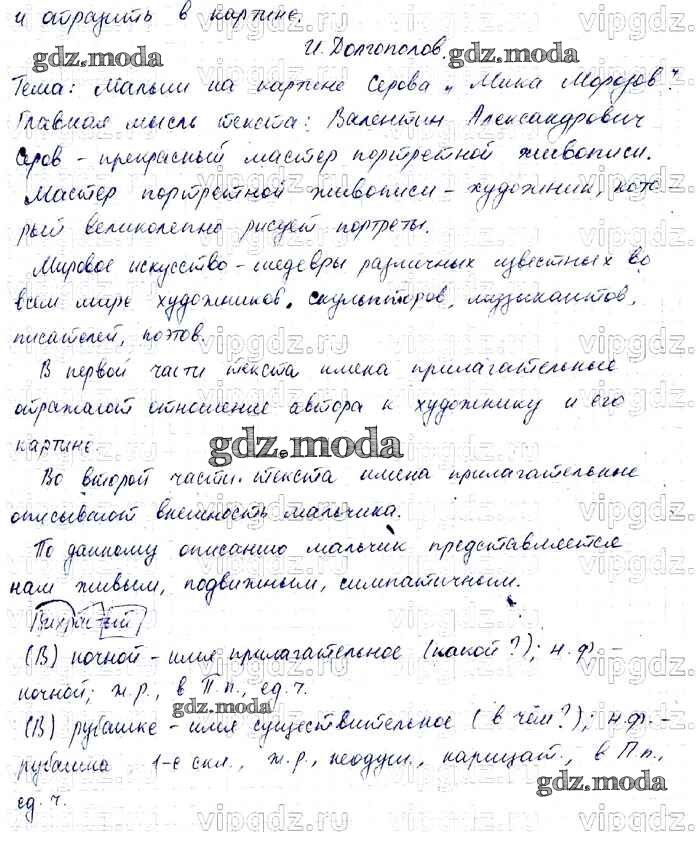 и отразить в картине.
И. Долгополов.
Тема: Малыш на картине Серова „Мика Морозов".
Главная мысль текста: Валентин Александрович
Серов - прекрасный мастер портретной живописи.
Мастер портретной живописи - художник, кото
рый великолепно рисует портреты.
Мировое искусство - шедевры различных известных во
всём мире художников, скульпторов, музыкантов,
писателей, поэтов.
В первой части текста имена прилагательные
отражают отношение автора к художнику и его
картине.
Во второй части текста имена прилагательные
описывают внешность мальчика.
По данному описанию мальчик представляется
нам живым, подвижным, симпатичным.
Вихрастый
(В) ночной - имя прилагательное (какой?); н.ф. -
ночной; ж.р., в П.п., ед.ч.
(В) рубашке - имя существительное (в чём?); н.ф. -
рубашка, 1-е скл., ж.р., неодуш., нарицат., в П.п.,
ед.ч.
gdz.moda
gdz.moda
gdz.moda
gdz.moda
gdz.moda
vipgdz.ru